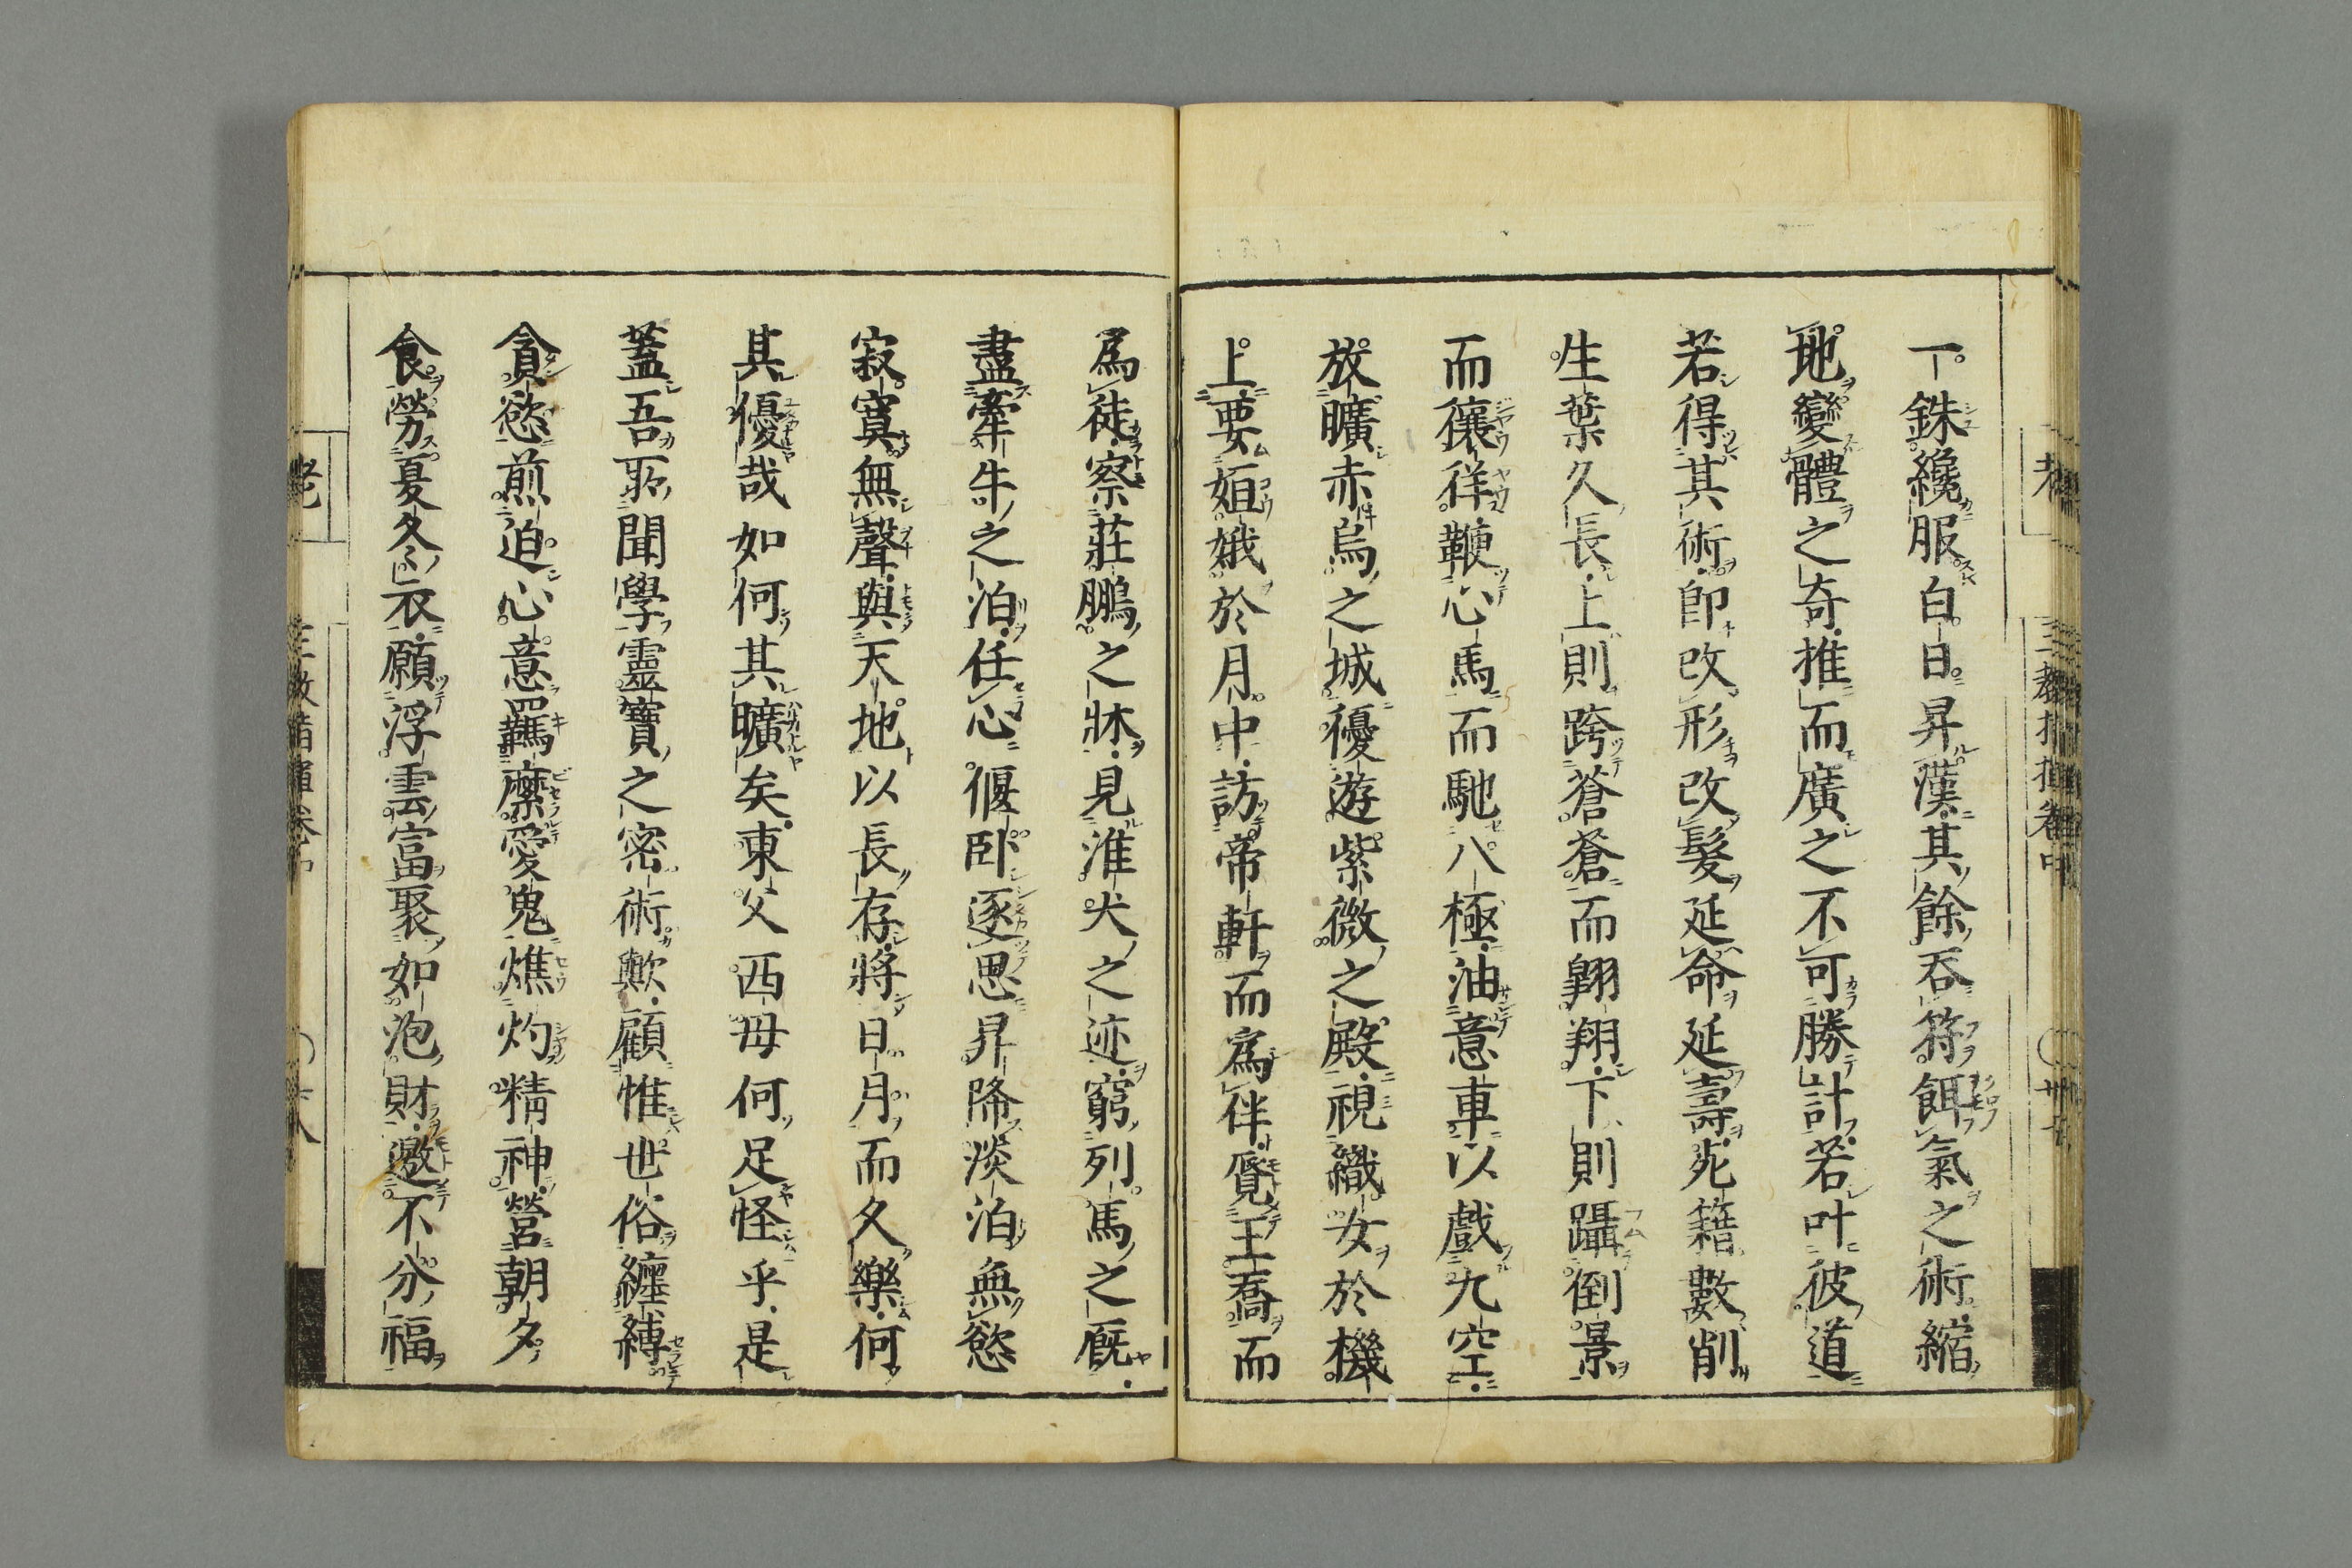 一銖纔服白日昇漢其餘呑符餌氣之術縮
地變體之奇推而廣之不可勝計若叶彼道
若得其術即改形改髮延命延壽死籍數削
生葉久長上則跨蒼蒼而翺翔下則躡倒景
而儴徉鞭心馬而馳八極油意車以戲九空
放曠赤烏之城優遊紫微之殿視織女於機
上要姮娥於月中訪帝軒而爲伴覓王喬而
爲徒察莊鵬之牀見淮犬之迹窮列馬之厩
盡牽牛之泊任心偃卧逐思昇降淡泊無慾
寂寞無聲與天地以長存將日月而久樂何
其優哉如何其曠矣東父西母何足怪乎是
蓋吾所聞學靈寶之密術歟顧惟世俗纏縛
貪慾煎迫心意羈縻愛鬼燋灼精神營朝夕
食勞夏冬衣願浮雲富聚如泡財邀不分福
三教指歸卷中